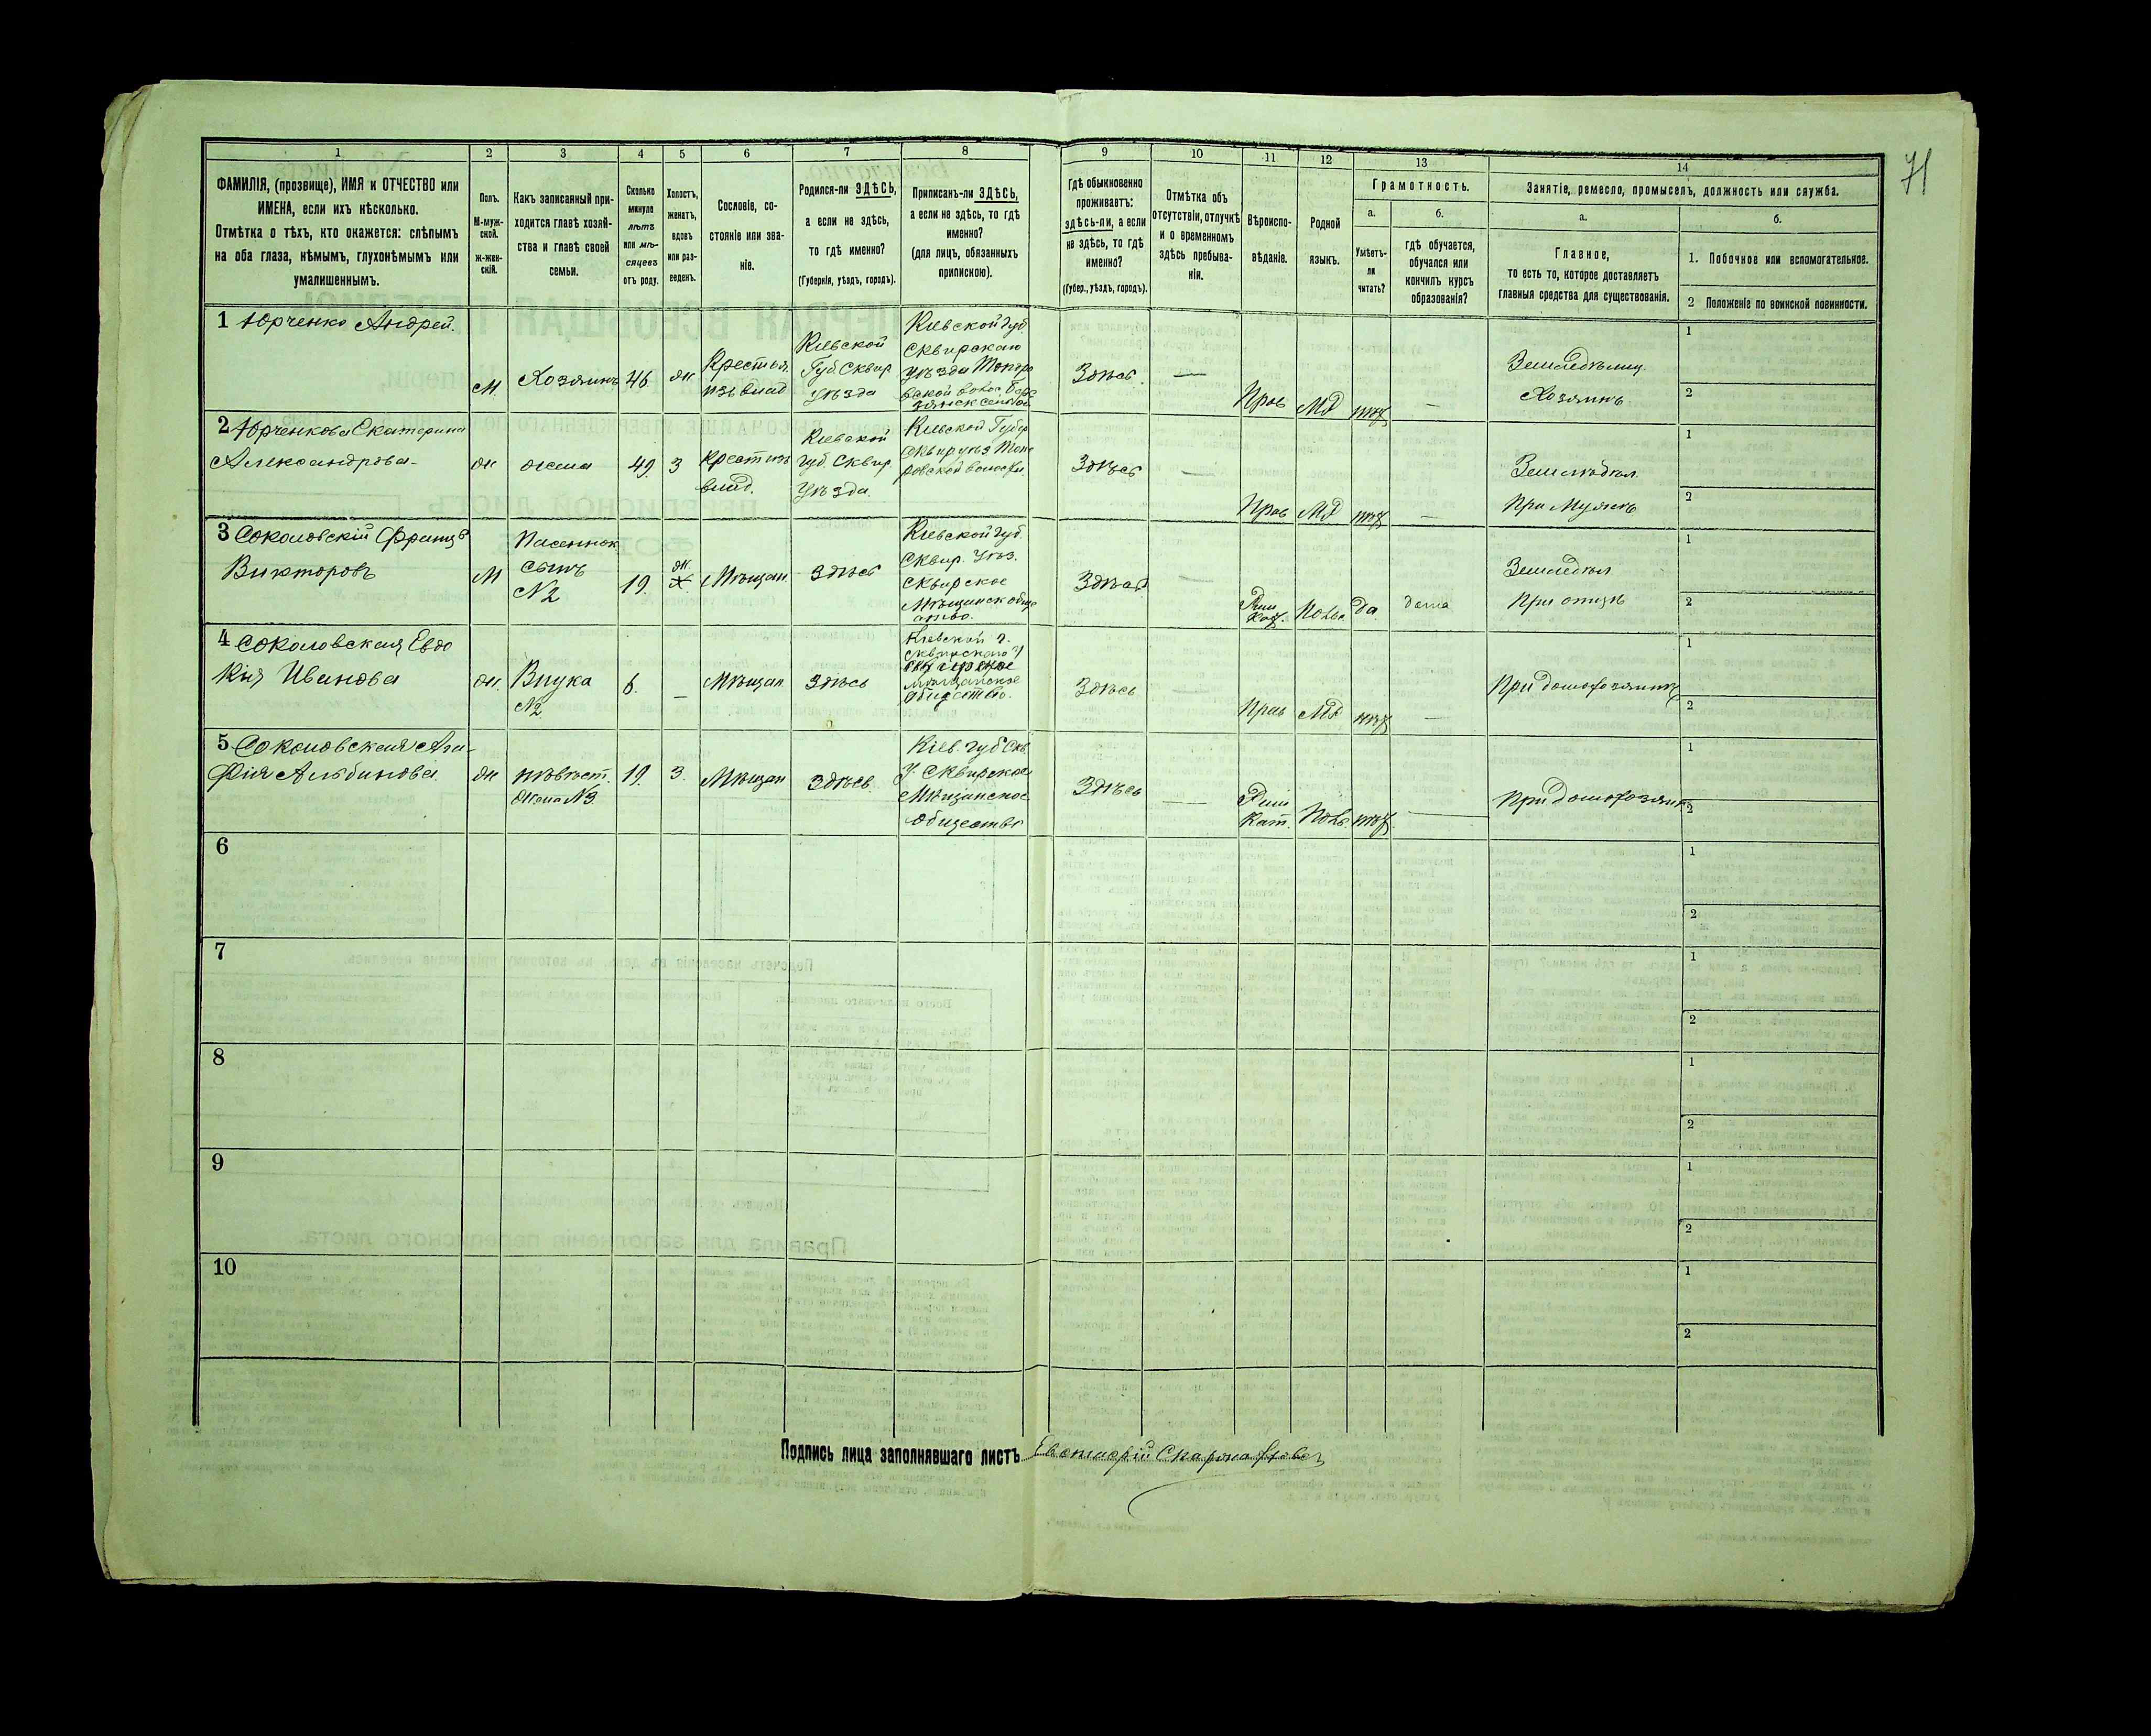 71
1 2 3 4 5 6 7 8 9 10 11 12 13 14
ФАМИЛІЯ, (прозвище), ИМЯ и ОТЧЕСТВО или
ИМЕНА, если ихъ нѣсколько.
Отмѣтка о тѣхъ, кто окажется: слѣпымъ
на оба глаза, нѣмымъ, глухонѣмымъ или
умалишеннымъ.
Полъ.
М-муж-
ской.
ж-жен-
скій.
Какъ записанный при-
ходится главѣ хозяй-
ства и главѣ своей
семьи.
Сколько
минуло
лѣтъ
или мѣ-
сяцевъ
отъ роду.
Холостъ,
женатъ,
вдовъ
или раз-
веденъ.
Сословіе, со-
стояніе или зва-
ніе.
Родился-ли ЗДѢСЬ,
а если не здѣсь,
то гдѣ именно?
(Губернія, уѣздъ, городъ).
Приписанъ-ли ЗДѢСЬ,
а если не здѣсь, то гдѣ
именно?
(для лицъ, обязанныхъ
припискою).
Гдѣ обыкновенно
проживаетъ:
здѣсь-ли, а если
не здѣсь, то гдѣ
именно?
(Губер., уѣздъ, городъ).
Отмѣтка объ
отсутствіи, отлучкѣ
и о временномъ
здѣсь пребыва-
ніи.
Вѣроиспо-
вѣданіе.
Родной
языкъ.
Грамотность.
а.
Умѣетъ-
ли
читать?
б.
гдѣ обучается,
обучался или
кончилъ курсъ
образованія?
Занятіе, ремесло, промыселъ, должность или служба.
а.
Главное,
то есть то, которое доставляетъ
главныя средства для существованія.
б.
1. Побочное или вспомогательное.
2 Положеніе по воинской повинности.
1 Юрченко Андрей.
М.
Хозяинъ
46
ж
Крестьян
изъ влад
Кіевской
Губ. Сквир
Уѣзда
Кіевской Губ
Сквирскаго
уѣзда
Здѣсь
—
Прав
—
Земледѣлец
Хозяинъ
1
2
2 Юрченкова Екатерина
Александрова
ж
жена
49.
З
Крест изъ
влад.
Кіевской
губ. Сквир.
Уѣзда.
Кіевской Губер
Здѣсь
—
Прав
—
Земледѣл.
При Мужѣ
1
2
3 Соколовскій Францъ
Викторовъ
М
Пасеннок
сынъ
№2
19.
ж.
Х.
Мѣщан
Здѣсь
Кіевской губ.
Сквир. Уѣз.
Сквирское
Мѣщанск обще
ство.
Здѣсь
—
Рим
Кат.
Польс
да
дома
Земледѣл
При отцѣ
1
2
4 Соколовская Евдо
кія Иванова
ж.
Внука
№2
6.
—
Мѣщан
Здѣсь
Кіевской г.
Сквирскаго у
Сквирское
мѣщанское
общество.
Здѣсь
—
Прав
—
При домохозяинѣ
1
2
5 Соколовская Ага-
фія Альбинова
ж
невѣст.
жена №3
19.
З.
Мѣщан
Здѣсь.
Кіев. губ Скв.
у. Сквирское
Мѣщанское
Общество
Здѣсь
—
Рим
Кат.
Польс.
—
При домохозяин
1
2
6
1
2
7
1
2
8
1
2
9
1
2
10
1
2
Подпись лица заполнявшаго листъ